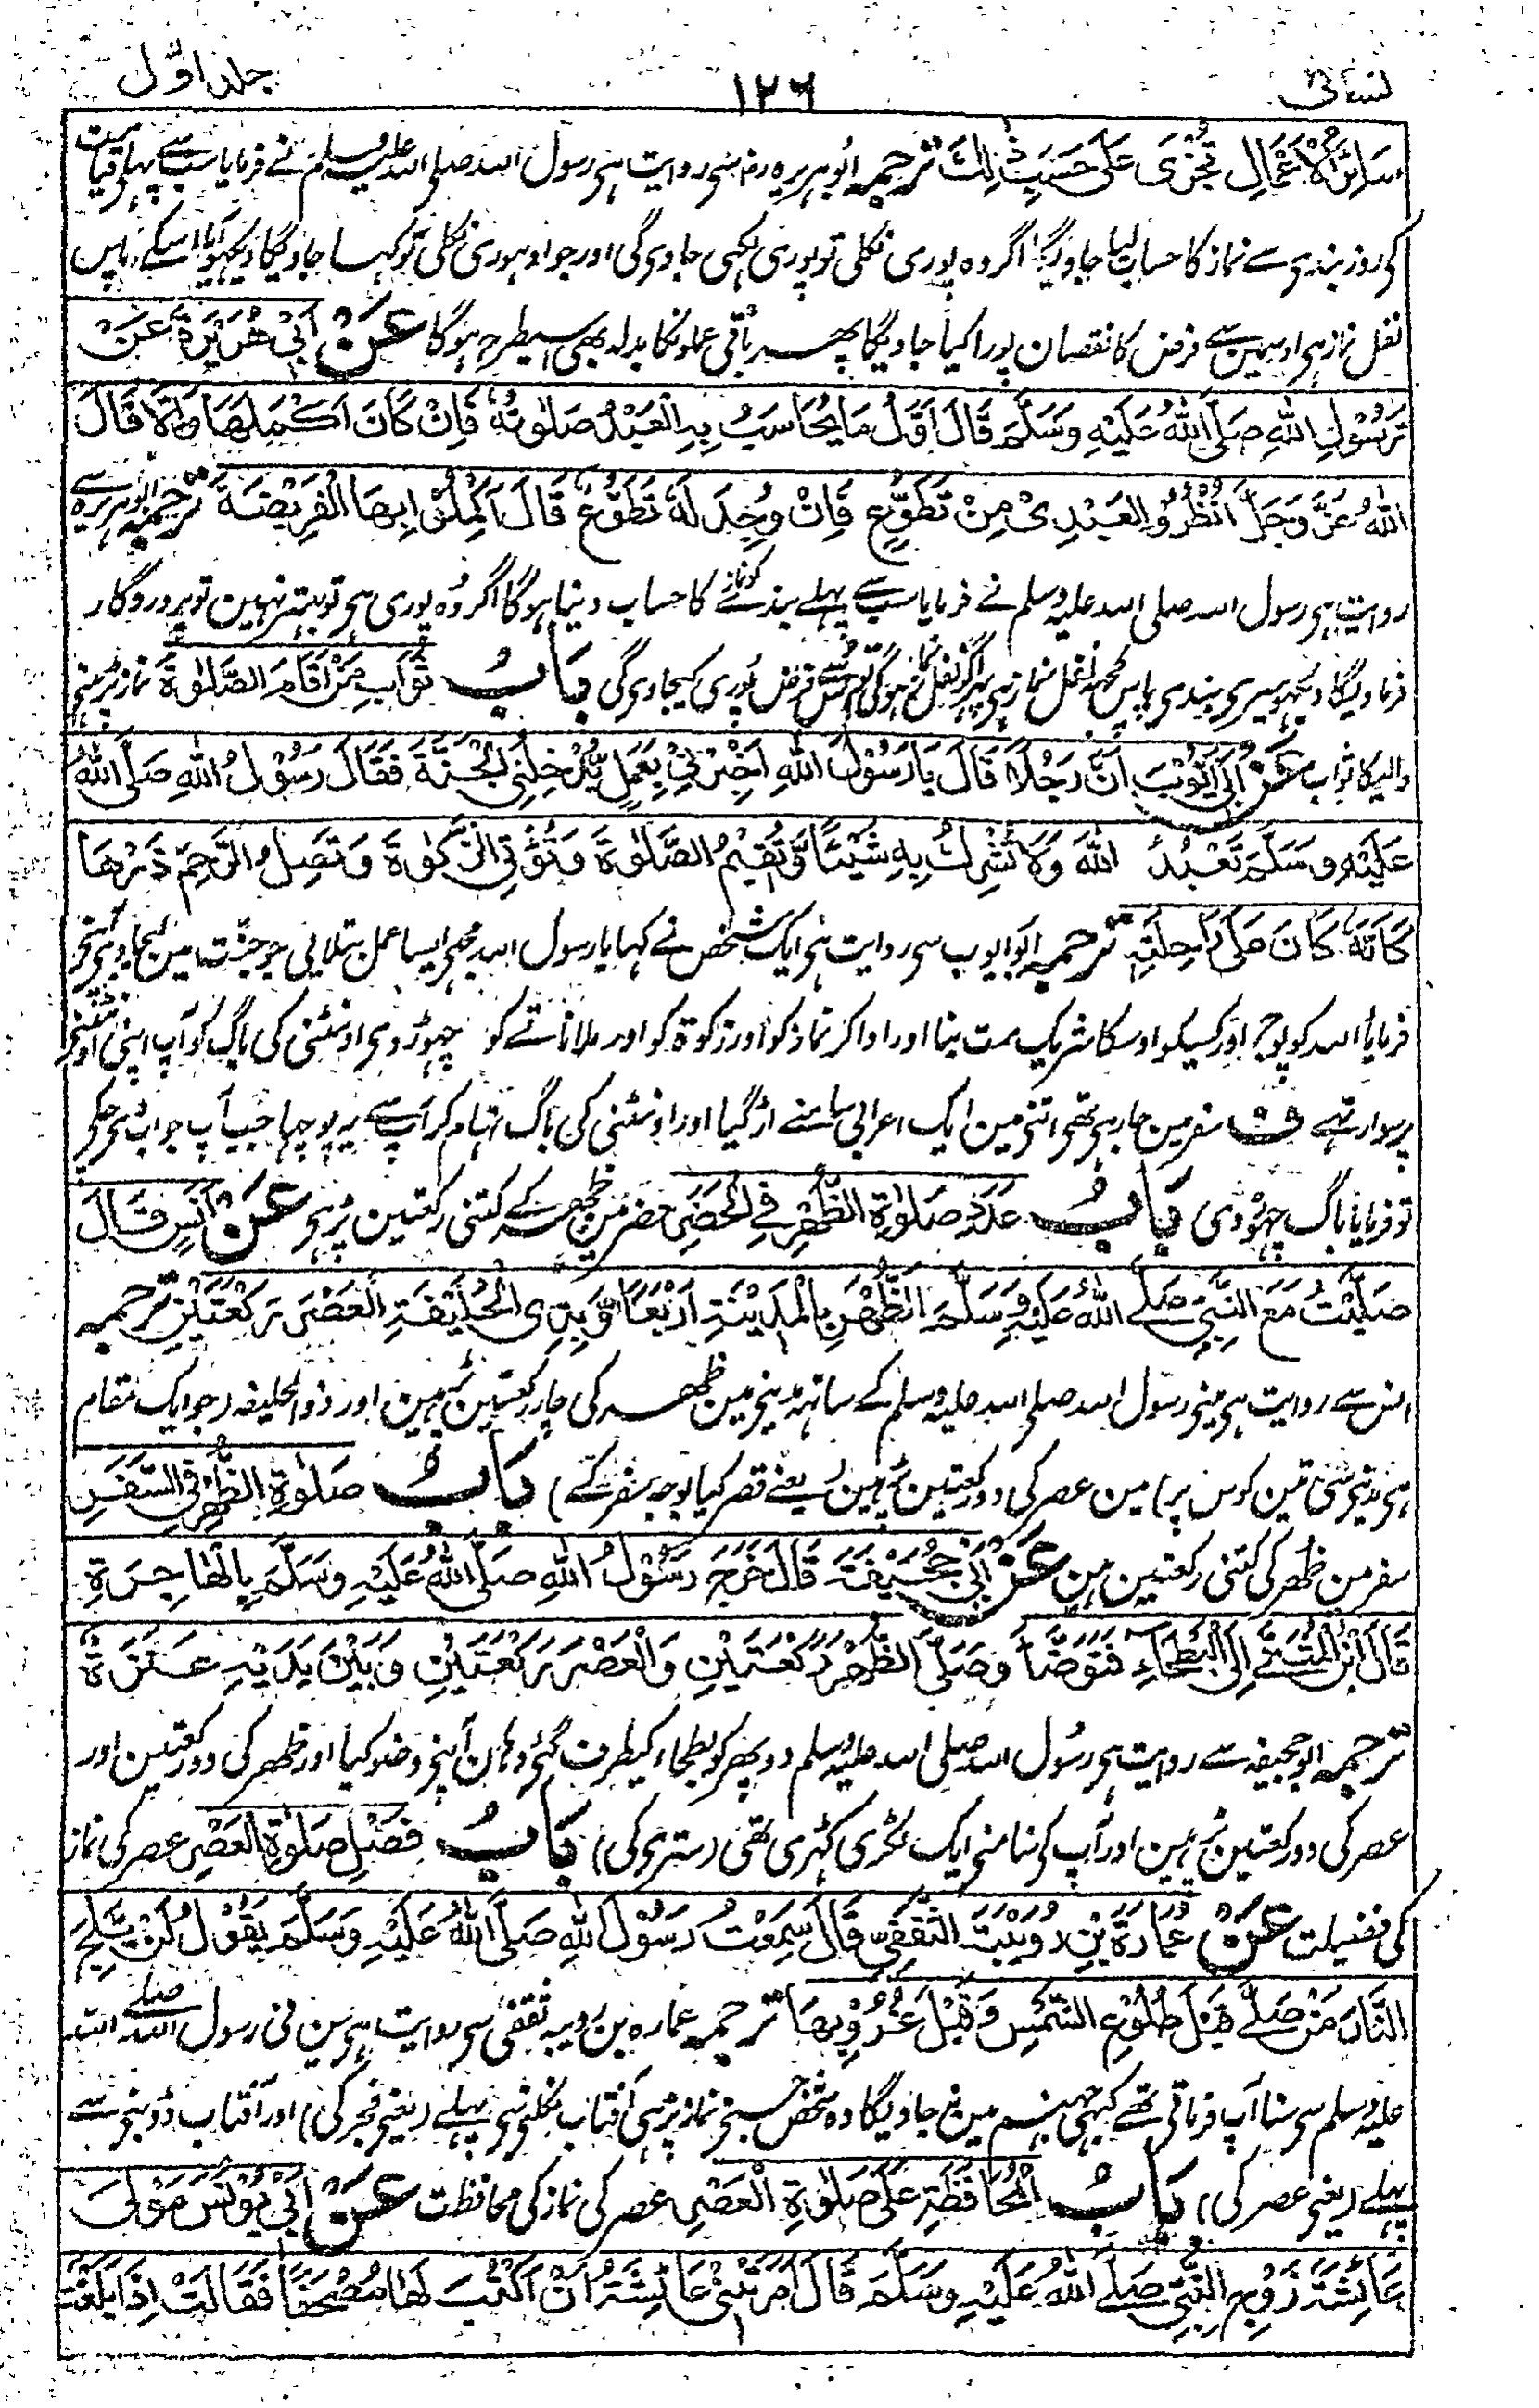 نسائی ۱۲۶ جلد اوّل
سَائِرُ الْاَعْمَالِ تُجْزٰى عَلٰى حَسَبِ ذٰلِكَ ترجمہ ابوہریرہ رضہ سے روایت ہے رسول اللہ صلی اللہ علیہ وسلم نے فرمایا سب سے پہلے قیامت
کی روز بندی سے نماز کا حساب لیا جاویگا اگر وہ پوری نکلی تو پوری لکھی جاوی گی اور جو ادہوری نکلی تو کہا جاویگا دیکھو آیا اسکے پاس
نفل نماز ہے اوسمین سے فرض کا نقصان پورا کیا جاویگا پھر باقی عملونکا بدلہ بھی اسیطرح ہوگا عَنْ اَبِیْ هُرَيْرَةَ عَنْ
رَسُوْلِ اللهِ صَلَّى اللهُ عَلَيْهِ وَسَلَّمَ قَالَ اَوَّلُ مَا يُحَاسَبُ بِهِ الْعَبْدُ صَلٰوتُهٗ فَاِنْ كَانَ اَكْمَلَهَا وَاِلَّا قَالَ
اللهُ عَزَّ وَجَلَّ اُنْظُرُوْا لِعَبْدِىْ مِنْ تَطَوُّعٍ فَاِنْ وُجِدَ لَهٗ تَطَوُّعٌ قَالَ اَكْمِلُوْا بِهَا الْفَرِيْضَةَ ترجمہ ابوہریرہ سے
روایت ہے رسول اللہ صلی اللہ علیہ وسلم نے فرمایا سب سے پہلے بندے کو نماز کا حساب دینا ہوگا اگر وہ پوری ہے تو بہتر نہین تو پروردگار
فرماویگا دیکھو میری بندی پاس کچھ نفل نماز ہے پہر اگر نفل نماز ہوگی تو اس سے فرض پوری کیجاوی گی بَابُ ثَوَابِ مَنْ اَقَامَ الصَّلٰوةَ نماز پڑھنے
والیکا ثواب عَنْ اَبِىْ اَيُّوْبَ اَنَّ رَجُلًا قَالَ يَا رَسُوْلَ اللهِ اَخْبِرْنِىْ بِعَمَلٍ يُّدْخِلُنِى الْجَنَّةَ فَقَالَ رَسُوْلُ اللهِ صَلَّى اللهُ
عَلَيْهِ وَسَلَّمَ تَعْبُدُ اللهَ وَلَا تُشْرِكُ بِهٖ شَيْئًا وَّتُقِيْمُ الصَّلٰوةَ وَتُؤْتِى الزَّكٰوةَ وَتَصِلُ الرَّحِمَ ذَرْهَا
كَاَنَّهٗ كَانَ عَلٰى رَاحِلَتِهٖ ترجمہ ابو ایوب سے روایت ہے ایک شخص نے کہا یا رسول اللہ مجھے ایسا عمل بتلائی جو جنت مین لیجاوی آپنے
فرمایا اللہ کو پوج اور کسیکو اوسکا شریک مت بنا اور ادا کر نماز کو اور زکوۃ کو اور ملا ناتے کو چھوڑ دی اونٹنی کی باگ کو آپ اپنی اونٹنی
پر سوار تہے ف سفر مین جا رہے تھے اتنے مین ایک اعرابی سامنے اڑ گیا اور اونٹنی کی باگ تہام کر آپ سے یہ پوچہا جب آپ جواب دے چکے
تو فرمایا باگ چھوڑ دی بَابُ عَدَدِ صَلٰوةِ الظُّهْرِ فِى الْحَضَرِ حضر مین ظہر کے کتنی رکعتین پڑہے عَنْ اَنَسٍ قَالَ
صَلَّيْتُ مَعَ النَّبِىِّ صَلَّى اللهُ عَلَيْهِ وَسَلَّمَ الظُّهْرَ بِالْمَدِيْنَةِ اَرْبَعًا وَّبِذِى الْحُلَيْفَةِ الْعَصْرَ رَكْعَتَيْنِ ترجمہ
انس سے روایت ہے مینے رسول اللہ صلی اللہ علیہ وسلم کے ساتہہ مدینے مین ظہر کی چار رکعتین پڑہین اور ذوالحلیفہ (جو ایک مقام
ہے مدینے سے تین کوس پر) مین عصر کی دو رکعتین پڑہین یعنے قصر کیا بوجہ سفر کے) بَابُ صَلٰوةِ الظُّهْرِ فِى السَّفَرِ
سفر من ظہر کی کتنی رکعتین ہین عَنْ اَبِىْ جُحَيْفَةَ قَالَ خَرَجَ رَسُوْلُ اللهِ صَلَّى اللهُ عَلَيْهِ وَسَلَّمَ بِالْهَاجِرَةِ
قَالَ ابْنُ الْمُثَنّٰى اِلَى الْبَطْحَآءِ فَتَوَضَّأَ وَصَلَّى الظُّهْرَ رَكْعَتَيْنِ وَالْعَصْرَ رَكْعَتَيْنِ وَبَيْنَ يَدَيْهِ عَنَزَةٌ
ترجمہ ابو جحیفہ سے روایت ہے رسول اللہ صلی اللہ علیہ وسلم دوپھر کو بطحاء کیطرف گئے وہان آپنے وضو کیا اور ظہر کی دو رکعتین اور
عصر کی دو رکعتین پڑہین اور آپ کی سامنے ایک لکڑی کہڑی تھی (سترے کی) بَابُ فَضْلِ صَلٰوةِ الْعَصْرِ عصر کی نماز
کی فضیلت عَنْ عُمَارَةَ بْنِ رُوَيْبَةَ الثَّقَفِىِّ قَالَ سَمِعْتُ رَسُوْلَ اللهِ صَلَّى اللهُ عَلَيْهِ وَسَلَّمَ يَقُوْلُ لَنْ يَّلِجَ
النَّارَ مَنْ صَلّٰى قَبْلَ طُلُوْعِ الشَّمْسِ وَقَبْلَ غُرُوْبِهَا ترجمہ عمارہ بن رویبہ ثقفی سے روایت ہے مین نی رسول اللہ صلی اللہ
علیہ وسلم سے سنا آپ فرماتی تھے کبھی جہنم مین نہ جاویگا وہ شخص جسنے نماز پڑہی آفتاب نکلنے سے پہلے (یعنے فجر کی) اور آفتاب ڈوبنے سے
پہلے (یعنے عصر کی) بَابُ الْمُحَافَظَةِ عَلٰى صَلٰوةِ الْعَصْرِ عصر کی نماز کی محافظت عَنْ اَبِىْ يُوْنُسَ مَوْلٰى
عَآئِشَةَ زَوْجِ النَّبِىِّ صَلَّى اللهُ عَلَيْهِ وَسَلَّمَ قَالَ اَمَرَتْنِىْ عَآئِشَةُ اَنْ اَكْتُبَ لَهَا مُصْحَفًا فَقَالَتْ اِذَا بَلَغْتَ